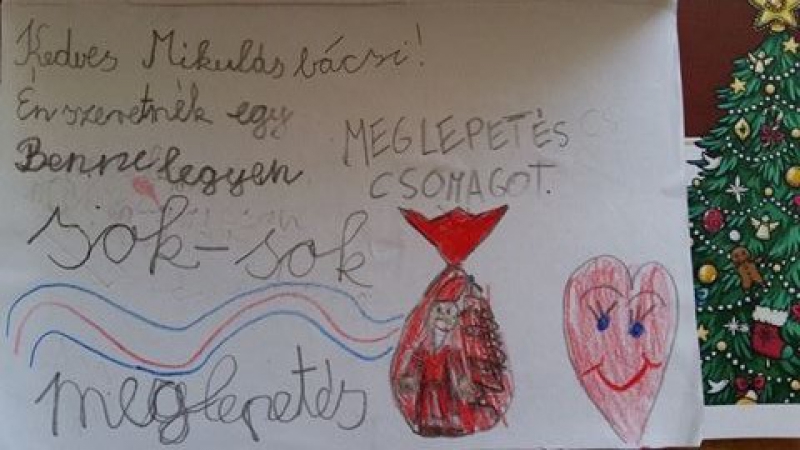 Kedves Mikulás bácsi!
Én szeretnék egy
MEGLEPETÉS
CSOMAGOT.
Benne legyen
sok-sok
meglepetés